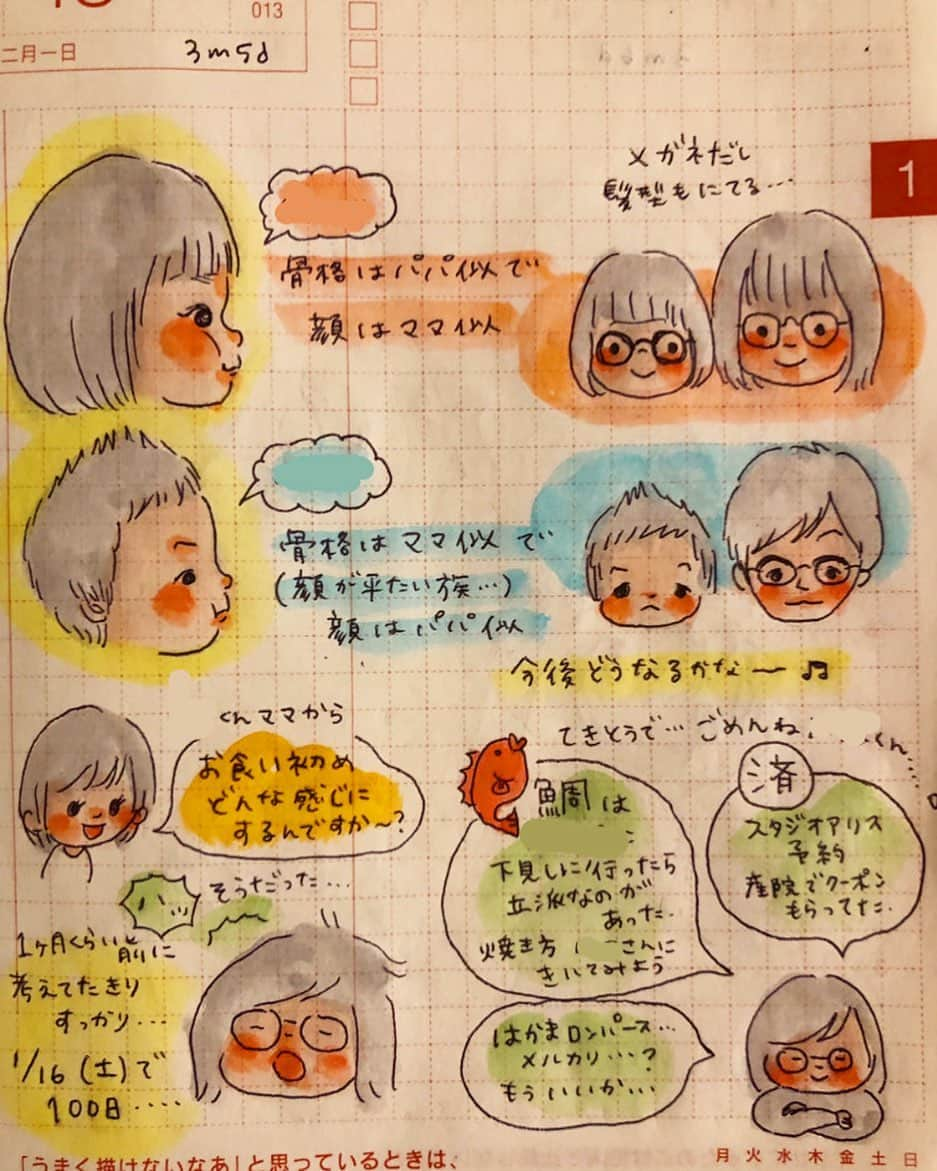 013
二月一日
3m5d
1
メガネだし
髪型もにてる…
骨格はパパ似で
顔はママ似
骨格はママ似で
(顔が平たい族…)
顔はパパ似
今後どうなるかな〜♫
くんママから
お食い初め
どんな感じに
するんですか〜?
ハッ
そうだった…
1ヶ月くらい前に
考えてたきり
すっかり…
1/16(土)で
100日….
てきとうで…ごめんね
くん
鯛は
下見しに行ったら
立派なのが
あった.
焼き方
さんに
きいてみよう
済
スタジオアリス
予約
産院でクーポン
もらってた.
はかまロンパース…
メルカリ…?
もういいか…
「うまく描けないなあ」と思っているときは、
月火水木金土日